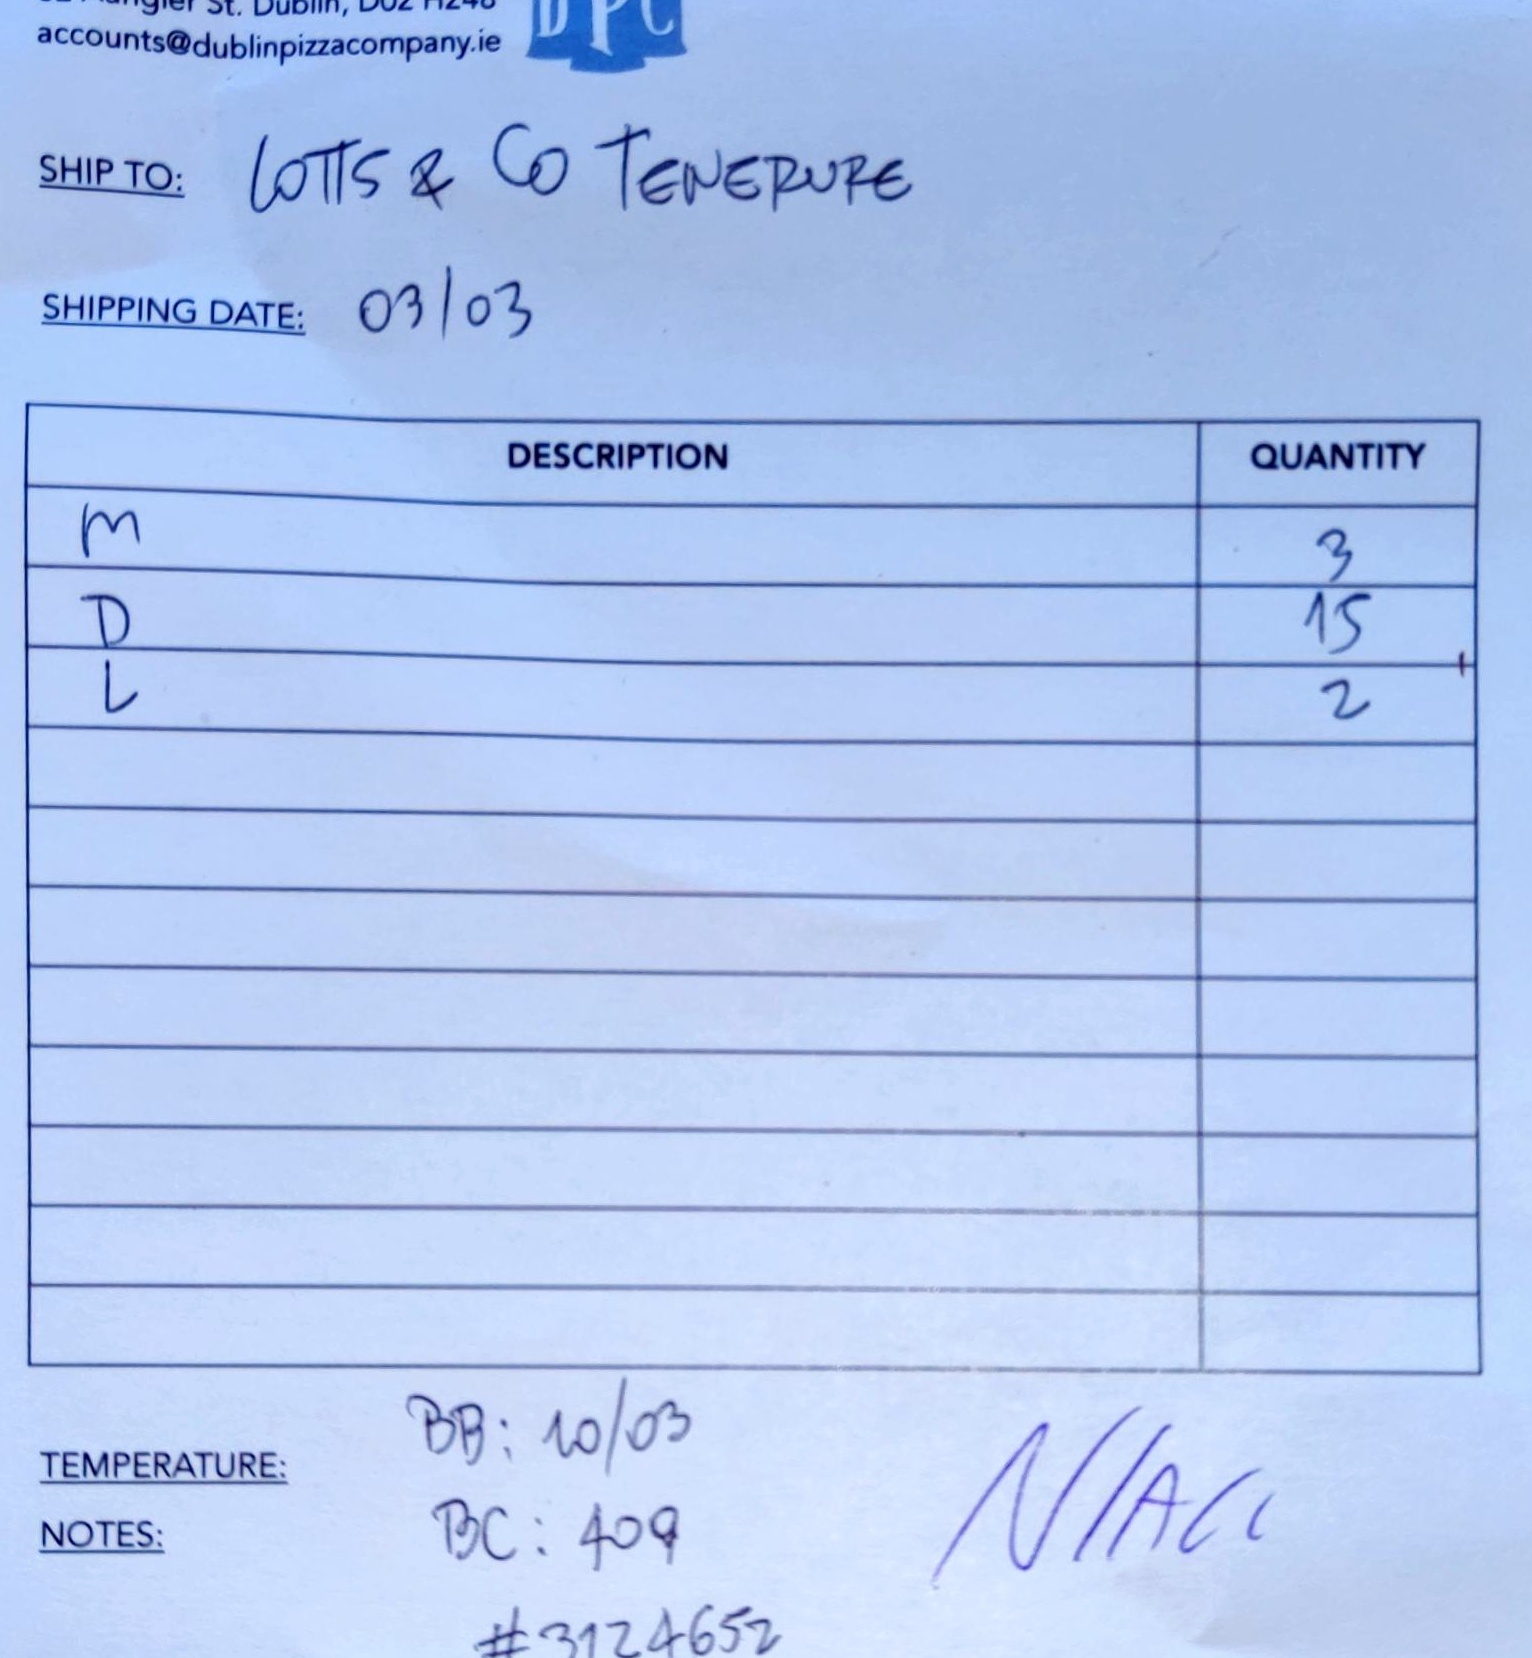 St. Dublin, D02 H248
accounts@dublinpizzacompany.ie
DPC
SHIP TO: LOTTS & CO TENERURE
SHIPPING DATE: 03/03
DESCRIPTION QUANTITY
M 3
D 15
L 2
BB: 10/03
TEMPERATURE:
BC: 409
NOTES:
NIALL
#3124652